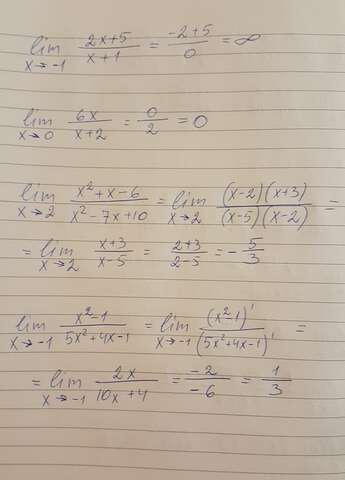 lim x→-1 2x+5/x+1 = -2+5/0 = ∞
lim x→0 6x/x+2 = 0/2 = 0
lim x→2 x²+x-6/x²-7x+10 = lim x→2 (x-2)(x+3)/(x-5)(x-2) =
= lim x→2 x+3/x-5 = 2+3/2-5 = -5/3
lim x→-1 x²-1/5x²+4x-1 = lim x→-1 (x²-1)'/(5x²+4x-1)' =
= lim x→-1 2x/10x+4 = -2/-6 = 1/3